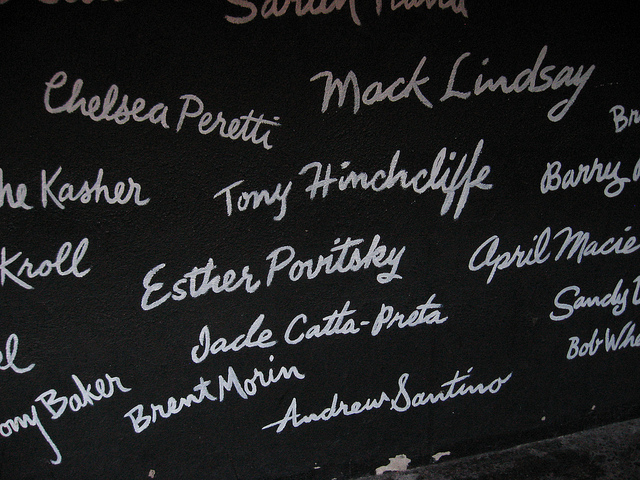 Chelsea Peretti
Mack Lindsay
he Kasher
Tony Hinchcliffe
Barry
Kroll
Esther Povitsky
April Macie
Jade Catta-Preta
Sandy
Bob
Baker
Brent Morin
Andrew Santino